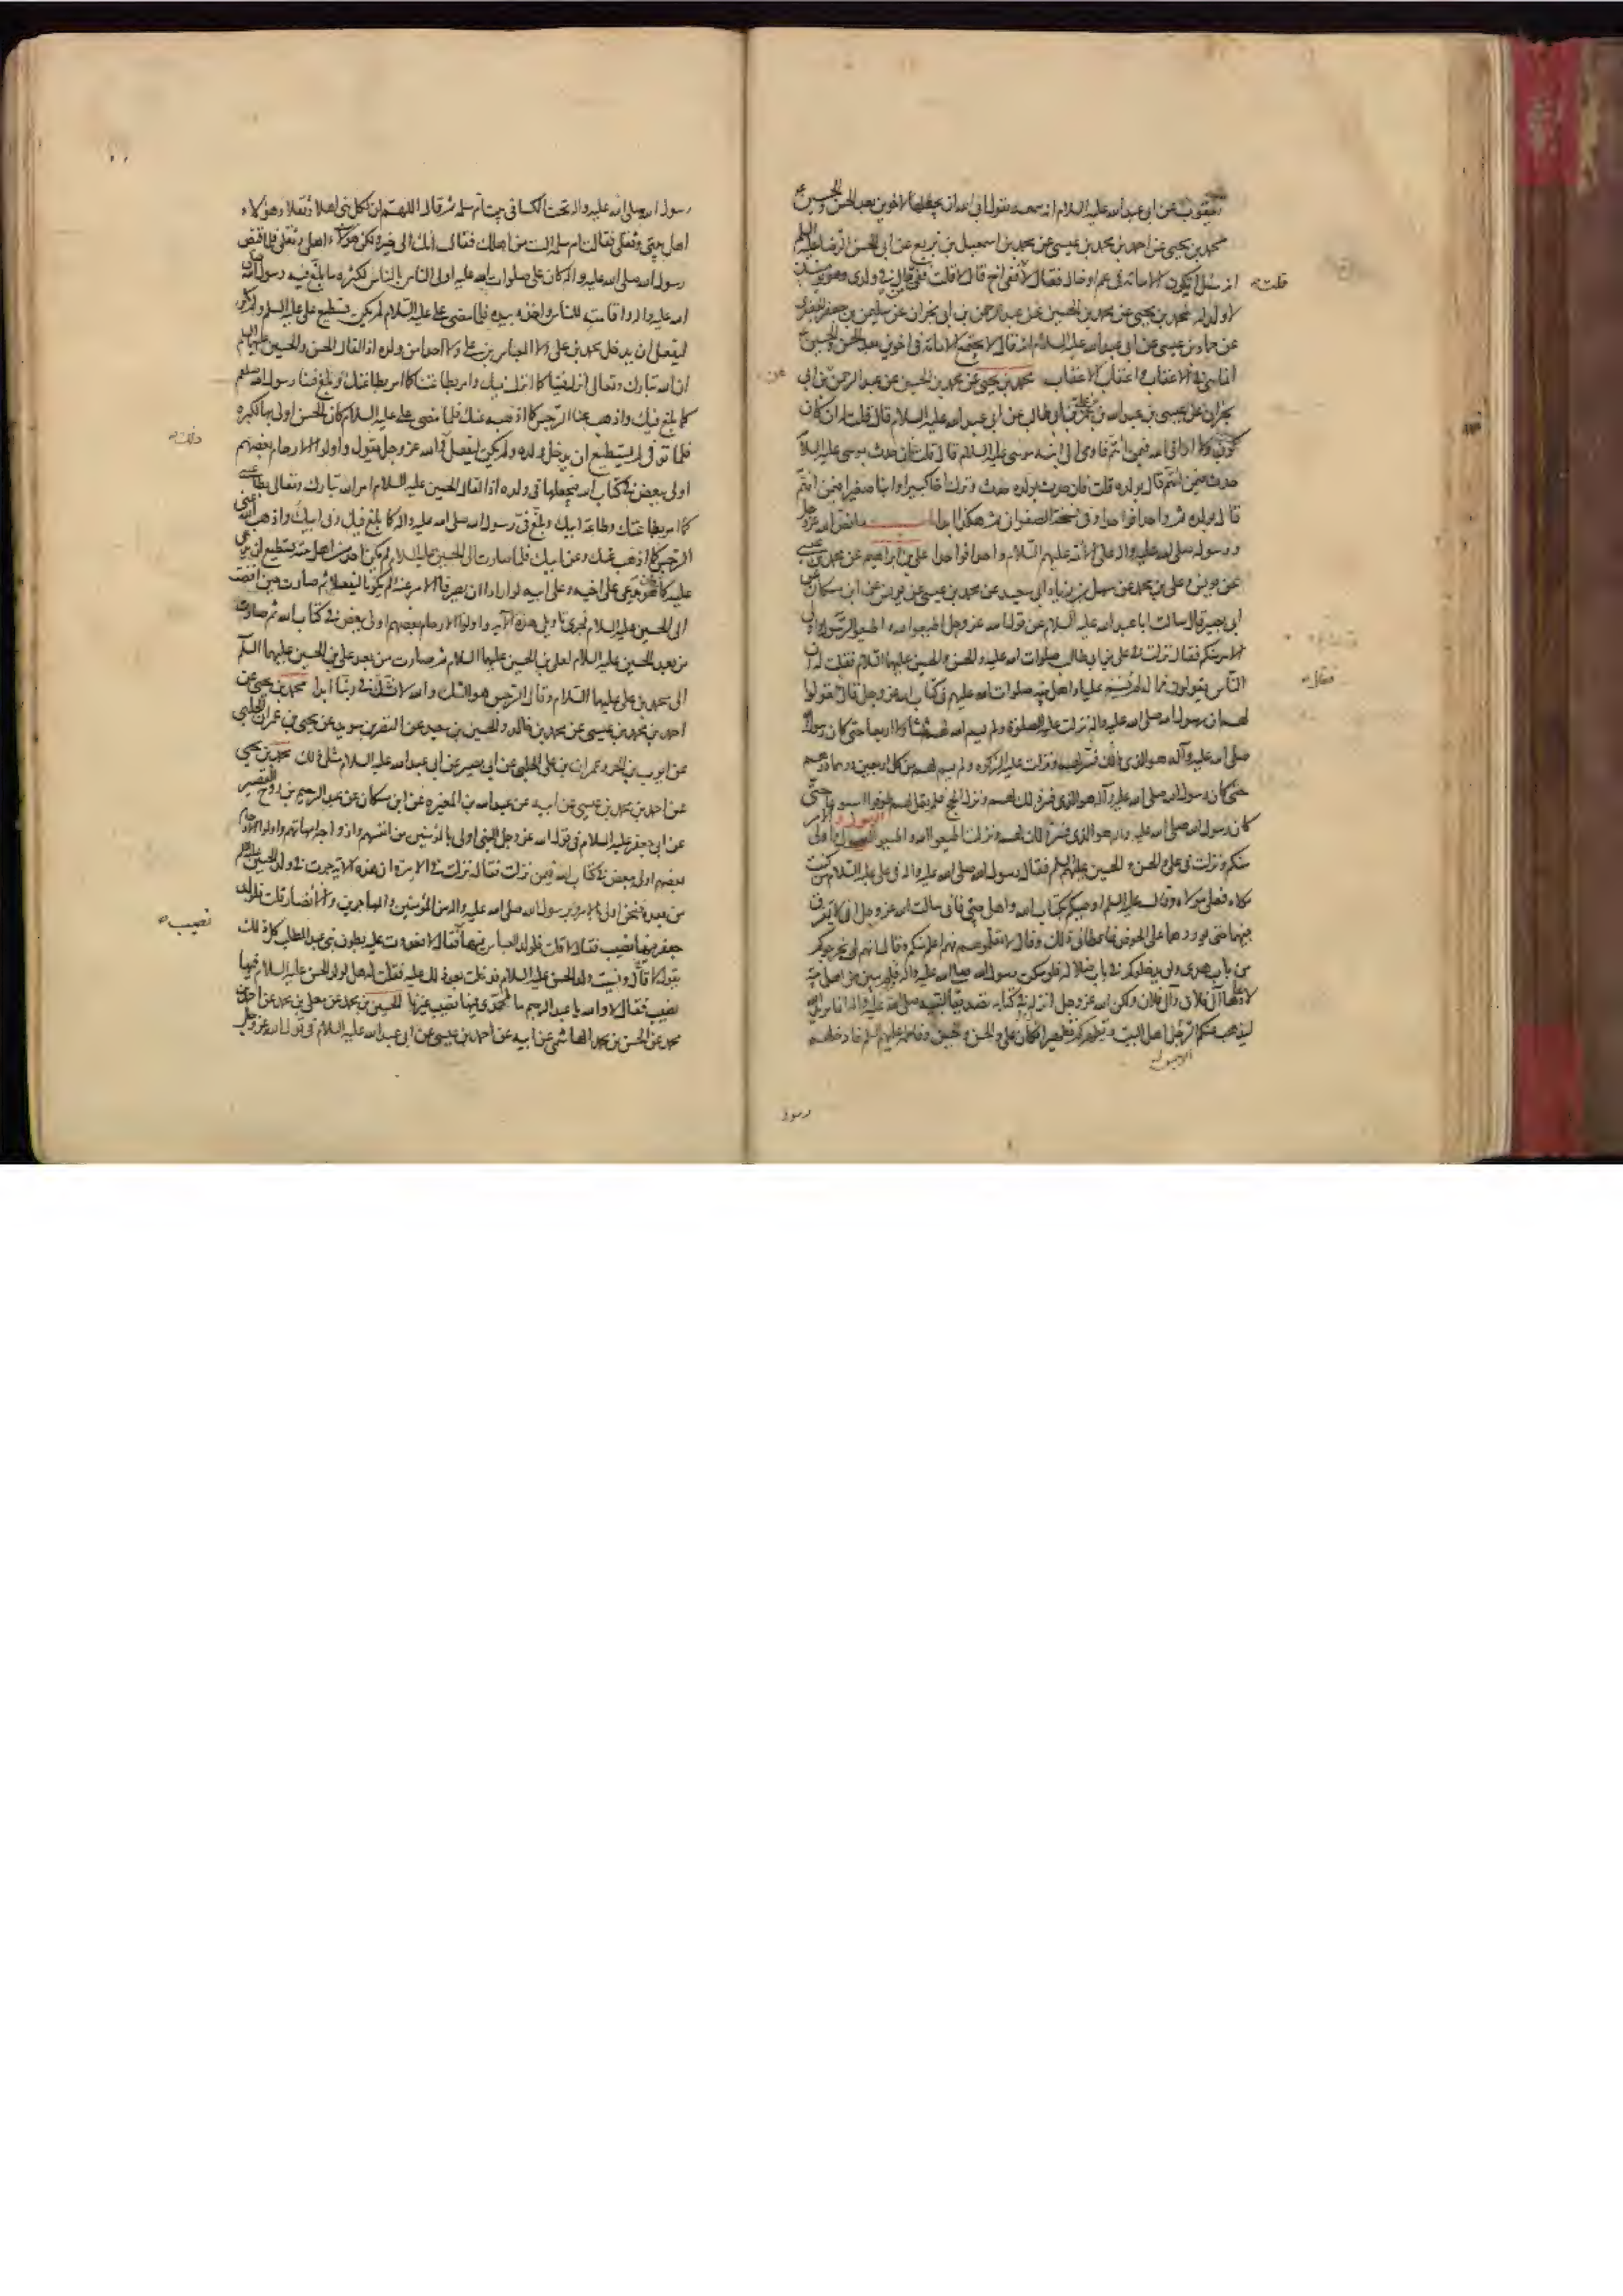 يعقوب عن ابي عبد الله عليه السلام انه سمعه يقول ابى الله ان يجعلها لاخوين بعد الحسن والحسين
محمد بن يحيى عن احمد بن محمد بن عيسى عن محمد بن اسمعيل بن بزيع عن ابي الحسن الرضا عليه السلم
انه سئل اتكون الامامة في عم او خال فقال لا فقلت ففي اخ قال لا قلت ففي من قال في ولدي وهو يومئذ
قلت
لا ولد له محمد بن يحيى عن محمد بن الحسين عن عبد الرحمن بن ابي نجران عن سليمن بن جعفر الجعفري
عن حماد بن عيسى عن ابي عبد الله عليه السلام انه قال لا يجتمع الامامة في اخوين بعد الحسن والحسين
انما هي في الاعقاب واعقاب الاعقاب محمد بن يحيى عن محمد بن الحسين عن عبد الرحمن بن ابي
نجران عن عيسى بن عبد الله بن عمر بن علي بن ابي طالب عن ابي عبد الله عليه السلام قال قلت له ان كان
كون ولا اراني الله فبمن ائتم فاومى الى ابنه موسى عليه السلام قال قلت فان حدث بموسى عليه السلام
حدث فبمن ائتم قال بولده قلت فان حدث بولده حدث وترك اخا كبيرا وابنا صغيرا فبمن ائتم
قال بولده ثم واحدا فواحدا وفي نسخة الصفواني ثم هكذا ابدا ما نص الله عز وجل
ورسوله صلى الله عليه واله على الائمة عليهم السلام واحدا فواحدا علي بن ابراهيم عن محمد بن عيسى
عن يونس وعلي بن محمد عن سهل بن زياد ابي سعيد عن محمد بن عيسى عن يونس عن ابن مسكان عن
ابي بصير قال سالت ابا عبد الله عليه السلام عن قول الله عز وجل اطيعوا الله واطيعوا الرسول واولى
الامر منكم فقال نزلت في علي بن ابي طالب صلوات الله عليه والحسن والحسين عليهما السلام فقلت له ان
الناس يقولون فما له لم يسم عليا واهل بيته صلوات الله عليهم في كتاب الله عز وجل قال قولوا
فقال
لهم ان رسول الله صلى الله عليه واله نزلت عليه الصلوة ولم يسم الله لهم ثلثا ولا اربعا حتى كان رسول الله
صلى الله عليه وآله هو الذي فسر ذلك لهم ونزلت عليه الزكوة ولم يسم لهم من كل اربعين درهما درهم
حتى كان رسول الله صلى الله عليه وآله هو الذي فسر ذلك لهم ونزل الحج فلم يقل لهم طوفوا اسبوعا حتى
كان رسول الله صلى الله عليه واله هو الذي فسر ذلك لهم ونزلت اطيعوا الله واطيعوا الرسول واولي الامر
منكم ونزلت في علي والحسن والحسين عليهم السلم فقال رسول الله صلى الله عليه واله في علي عليه السلام من كنت
مولاه فعلي مولاه وقال عليه السلم اوصيكم بكتاب الله واهل بيتي فاني سالت الله عز وجل ان لا يفرق
بينهما حتى يوردهما علي الحوض فاعطاني ذلك وقال لا تعلموهم فهم اعلم منكم وقال انهم لن يخرجوكم
من باب هدى ولن يدخلوكم في باب ضلالة فلو سكت رسول الله صلى الله عليه واله فلم يبين من اهل بيته
لادعاها آل فلان وآل فلان ولكن الله عز وجل انزل في كتابه تصديقا لنبيه صلى الله عليه واله انما يريد الله
ليذهب عنكم الرجس اهل البيت ويطهركم تطهيرا فكان علي والحسن والحسين وفاطمة عليهم السلم فادخلهم
رسول
رسول الله صلى الله عليه واله تحت الكساء في بيت ام سلمة ثم قال اللهم ان لكل نبي اهلا وثقلا وهؤلاء
اهل بيتي وثقلي فقالت ام سلمة الست من اهلك فقال انك الى خير ولكن هؤلاء اهلي وثقلي فلما قبض
رسول الله صلى الله عليه واله كان علي صلوات الله عليه اولى الناس بالناس لكثرة ما بلغ فيه رسول الله صلى
الله عليه واله واقامته للناس واخذه بيده فلما مضى علي عليه السلام لم يكن يستطيع علي عليه السلم ولم يكن
ليفعل ان يدخل محمد بن علي ولا العباس بن علي ولا احدا من ولده اذا لقال الحسن والحسين عليهما السلم
ان الله تبارك وتعالى انزل فينا كما انزل فيك وامر بطاعتنا كما امر بطاعتك وبلغ فينا رسول الله صلعم
كما بلغ فيك واذهب عنا الرجس كما اذهبه عنك فلما مضى علي عليه السلام كان الحسن اولى بها لكبره
فلما توفي لم يستطيع ان يدخل ولده ولم يكن ليفعل ذلك والله عز وجل يقول واولوا الارحام بعضهم
ذلك
اولى ببعض في كتاب الله فيجعلها في ولده اذا لقال الحسين عليه السلام امر الله تبارك وتعالى بطاعتي
كما امر بطاعتك وطاعة ابيك وبلغ في رسول الله صلى الله عليه واله كما بلغ فيك وفي ابيك واذهب الله عني
الرجس كما اذهب عنك وعن ابيك فلما صارت الى الحسين عليه السلام لم يكن احد من اهل بيته يستطيع ان يدعي
عليه كما كان هو يدعي على اخيه وعلى ابيه لو ارادا ان يصرفا الامر عنه ولم يكونا ليفعلا ثم صارت حين افضت
الى الحسين عليه السلام فجرى تاويل هذه الآية واولوا الارحام بعضهم اولى ببعض في كتاب الله ثم صارت
من بعد الحسين عليه السلام لعلي بن الحسين عليهما السلام ثم صارت من بعد علي بن الحسين عليهما السلم
الى محمد بن علي عليهما السلام وقال الرجس هو الشك والله لا نشك في ربنا ابدا محمد بن يحيى عن
احمد بن محمد بن عيسى عن محمد بن خالد والحسين بن سعيد عن النضر بن سويد عن يحيى بن عمران الحلبي
عن ايوب بن الحر وعمران بن علي الحلبي عن ابي بصير عن ابي عبد الله عليه السلام مثل ذلك محمد بن يحيى
عن احمد بن محمد بن عيسى عن ابيه عن عبد الله بن المغيره عن ابن مسكان عن عبد الرحيم بن روح القصير
عن ابي جعفر عليه السلام في قول الله عز وجل النبي اولى بالمؤمنين من انفسهم وازواجه امهاتهم واولوا الارحام
بعضهم اولى ببعض في كتاب الله فيمن نزلت فقال نزلت في الامرة ان هذه الاية جرت في ولد الحسين عليه السلم
من بعده فنحن اولى بالامر وبرسول الله صلى الله عليه واله من المؤمنين والمهاجرين والانصار قلت فلولد
نصيب
جعفر فيها نصيب فقال لا قلت فلولد العباس فيها فقال لا فعددت عليه بطون بني عبد المطلب كل ذلك
يقول لا قال ونسيت ولد الحسن عليه السلام فدخلت بعد ذلك عليه فقلت له هل لولد الحسن عليه السلام فيها
نصيب فقال لا والله يا عبد الرحيم ما لمحمدي فيها نصيب غيرنا الحسين بن محمد عن معلى بن محمد عن احمد بن
محمد عن الحسن بن محمد الهاشمي عن ابيه عن احمد بن عيسى عن ابي عبد الله عليه السلام في قول الله عز وجل